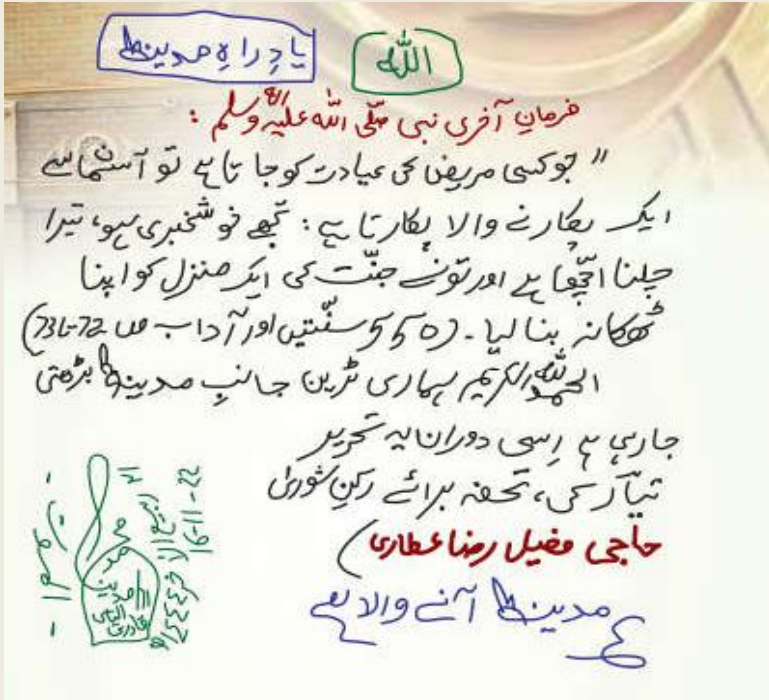 یادِ راہِ مدینہ
اللہ
فرمانِ آخری نبی صلَّی اللہ علیہ واٰلہٖ وسلم :
"جو کسی مریض کی عیادت کو جاتا ہے تو آسمان سے
ایک پکارنے والا پکارتا ہے : تجھے خوشخبری ہو، تیرا
چلنا اچّھا ہے اور تونے جنّت کی ایک منزل کو اپنا
ٹھکانہ بنا لیا۔ (550 سنّتیں اور آداب ص 72-73)
الحمدللہ الکریم ہماری ٹرین جانبِ مدینہ بڑھتی
جارہی ہے اِسی دوران یہ تحریر
تیّار کی، تحفہ برائے رکنِ شوریٰ
حاجی فضیل رضا عطاری
مدینہ آنے والا ہے
محمد الیاس قادری
ربیع الآخر ١٤٤٤ھ
16-11-22